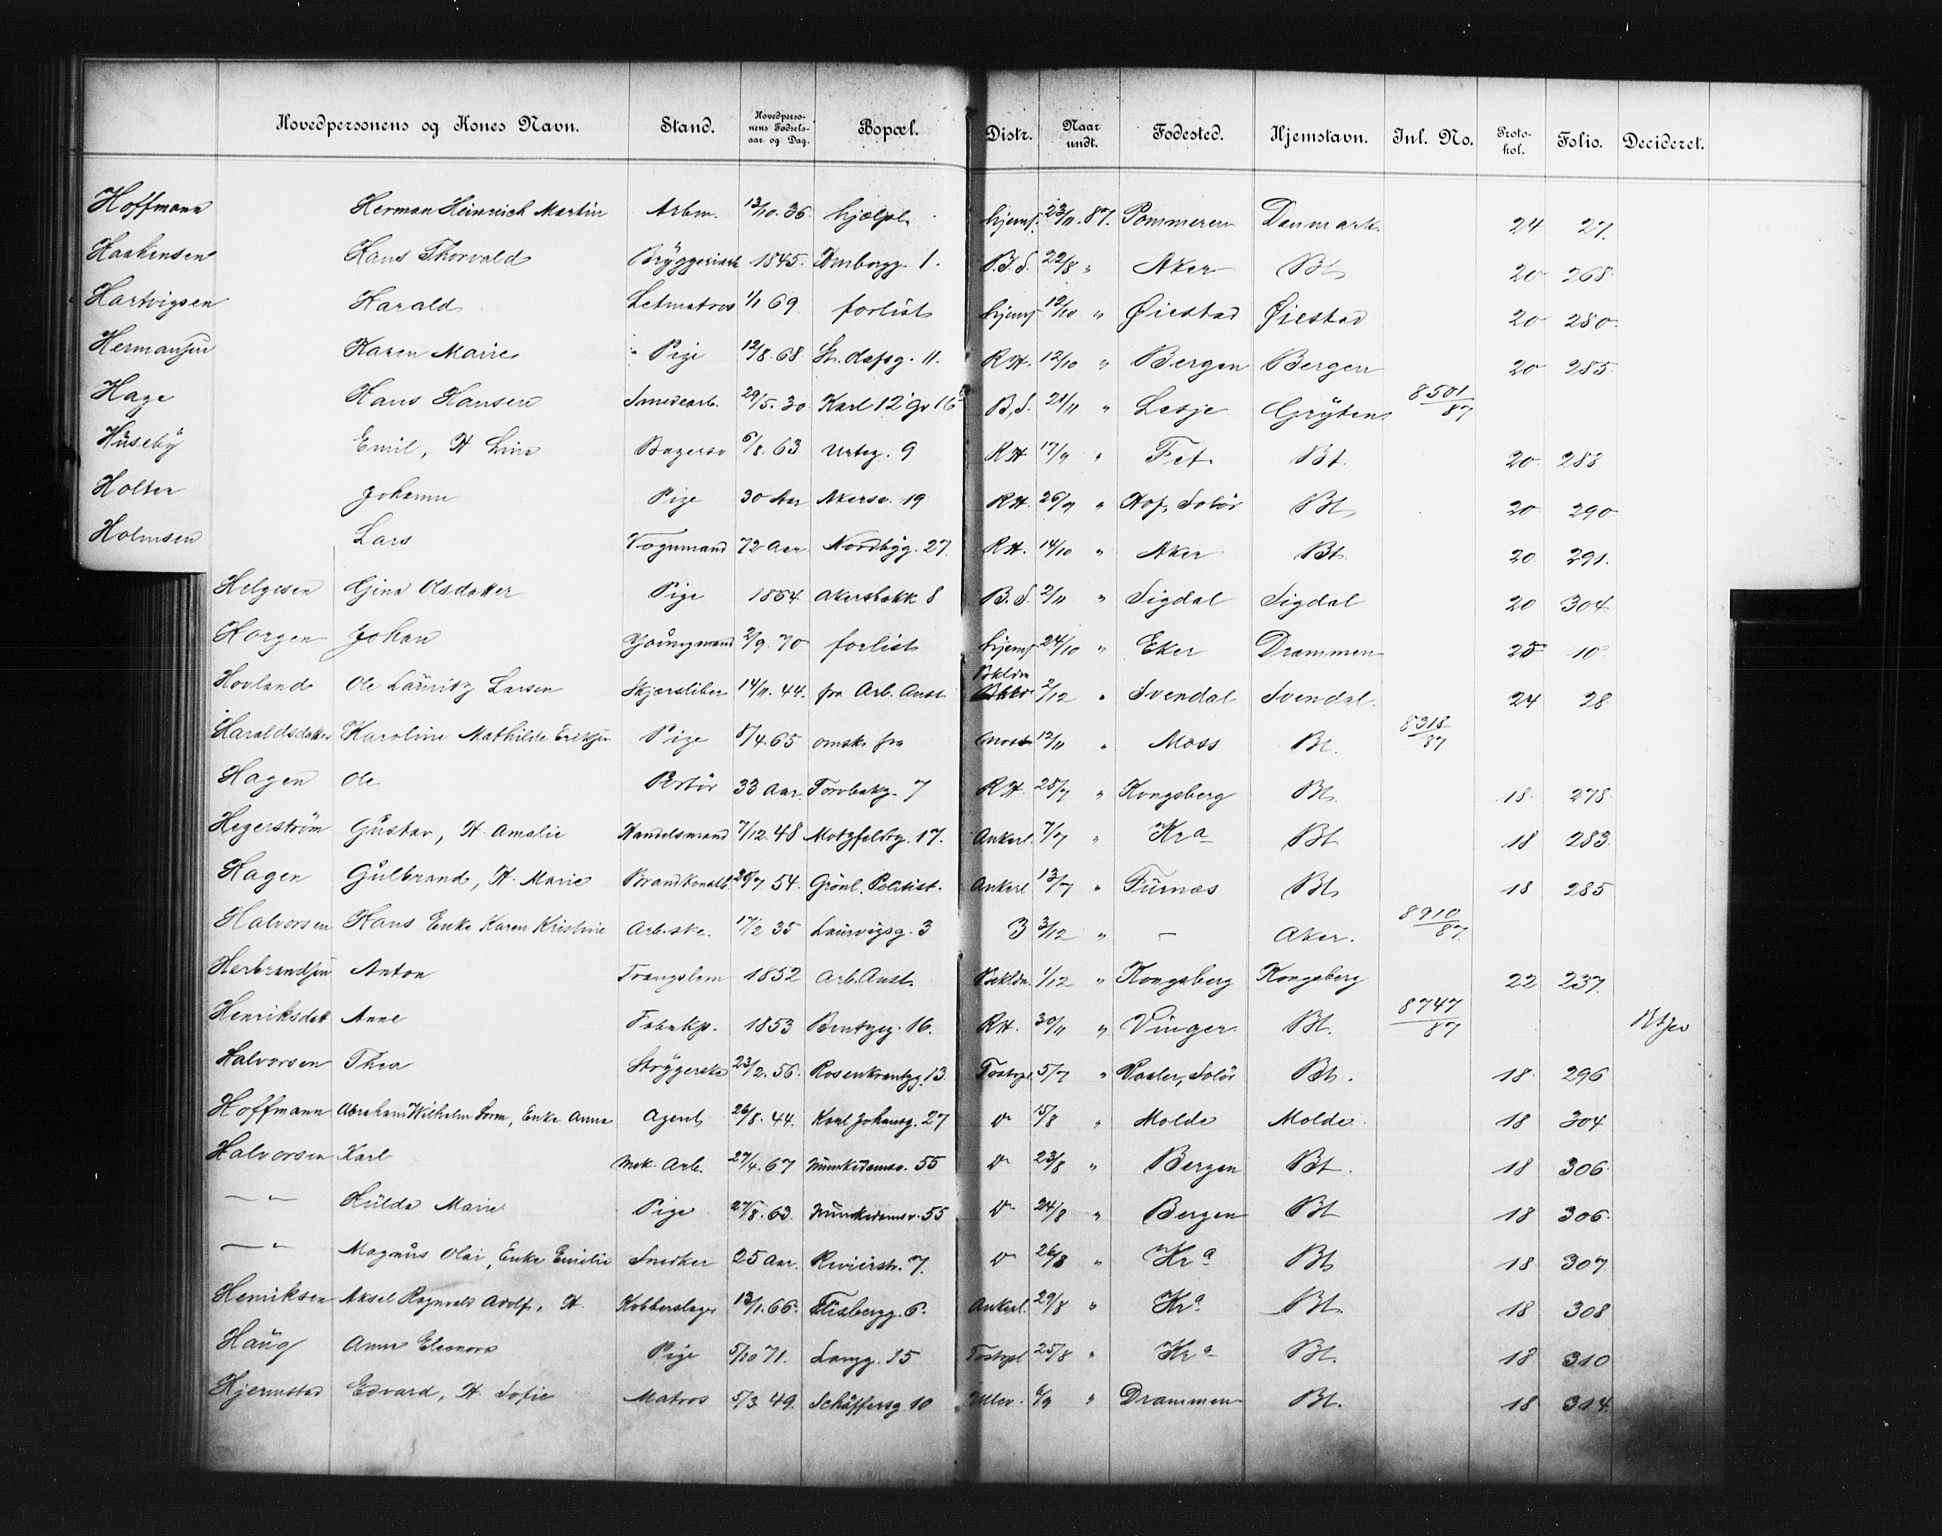 Hovedpersonens og Kones Navn. Stand. Hovedpersonens Fødselsaar og Dag. Bopæl. Distr. Naar undt. Fødested. Hjemstavn. Inl. No. Protokol. Folio. Decideret.
Hoffmann Herman Heinrich Martin Arbm. 13/10. 36 hjælpl. hjemf. 23/11. 87. Pommeren Danmark. 24 27.
Haakensen Hans Thorvald Bryggeriarb 1845. Tømbergg. 1. B.S. 22/8 " Aker Bt. 20 268.
Hartvigsen Harald Letmatros 1/1 69 forlist hjemf 12/10 " Øiestad Øiestad 20 280.
Hermansen Karen Marie Pige 12/8. 68 St. Olafsg. 11. RH. 12/10 " Bergen Bergen 20 285.
Hage Hans Hansen Smedearb. 29/5. 30 Karl 12 gd 16 B.S. 21/11 " Lesje Grÿten 8501/87
Huseby Emil, H Lina Bagersv 6/8. 63 Urteg. 9 RH 17/9 " Fet. Bt. 20 288
Holter Johanne Pige 30 Aar Akersv. 19 RH. 26/9 " Hof, Solør Bt. 20 290
Holmsen Lars Vognmand 72 Aar Nordbyg. 27 RH. 14/10 " Aker Bt. 20 291.
Helgesen Gina Olsdatter Pige 1864 Akersbakk 8 B.S. 2/11 " Sigdal Sigdal 20 304.
Horgen Johan Youngmand 2/9. 70 forlist hjemf 24/10 " Eker Drammen 25 10
Hovland Ole Lauritz Larsen Skjærsliber 14/11. 44. fra Arb. Anst Bkldn 2/12 " Svendal Svendal. 24 28
Haraldsdatter Karoline Mathilde Eriksen Pige 8/4 65 omsk. fra 12/11 " Moss Bt. 8318/87
Hagen Ole Portør 33 Aar. Torvbakg. 7 RH. 28/7 " Kongsberg Bt. 18. 278.
Hegerstrøm Gustav, H. Amalie Handelsmand 7/12 48 Motzfeldtg. 17. Ankerl. 7/7 " Kra Bt 18 283.
Hagen Gulbrand, H. Marie Brandkonstb. 20/7 54. Grønl. Politist. Ankerl 13/7 " Furnæs Bt. 18 285
Halvorsen Hans Enke Karen Kristine Arb.ske. 17/2 35 Laurvigsg. 3 3 3/12 " — Aker. 8910/87.
Herbrandsen Anton Tvangslem 1852 Arb. Anst. Bekldn. 1/12 " Kongsberg Kongsberg 22 237.
Henriksdatt Anne Fabrikp. 1853 Bentzeg. 16. RH. 30/11 " Vinger Bt. 8747/87
Halvorsen Thea Strygerske 23/2. 56. Rosenkrantzg. 13. Tostrpl. 5/7 " Vaaler, Solør Bt. 18 296
Hoffmann Abraham Wilhelm Sorm, Enke Anna Agent 26/8. 44. Karl Johansg. 27 15/8 " Molde Molde. 18 304
Halvorsen Karl Mek. Arb. 27/4. 67 Munkedamsv. 55 23/8 " Bergen Bt. 18 306.
— " — Hulda Marie Pige 27/8. 63. Munkedamsv. 55 24/8 " Bergen Bt 18 306.
— " — Magnus Olai, Enke Emilie Snedker 25 Aar. Revierstr. 7. 26/8 " Kra Bt 18 307
Henriksen Aksel Ragnvald Adolf, H. Kobberslager 13/1. 66. Flisbergg. 6. Ankerl. 29/8 " Kra. Bt. 18 308
Haug Anne Eleonora Pige 5/10 71. Langg. 15 Tostrpl 25/8 " Kra Bt. 18 310
Hjermstad Edvard, H. Sofie Matros 5/3. 49. Schäffersg 10 Ullev. 6/9 " Drammen Bt. 18 314.